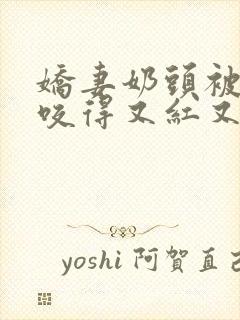 嬌妻奶頭被
咬得又紅又
yoshi 阿賀直己